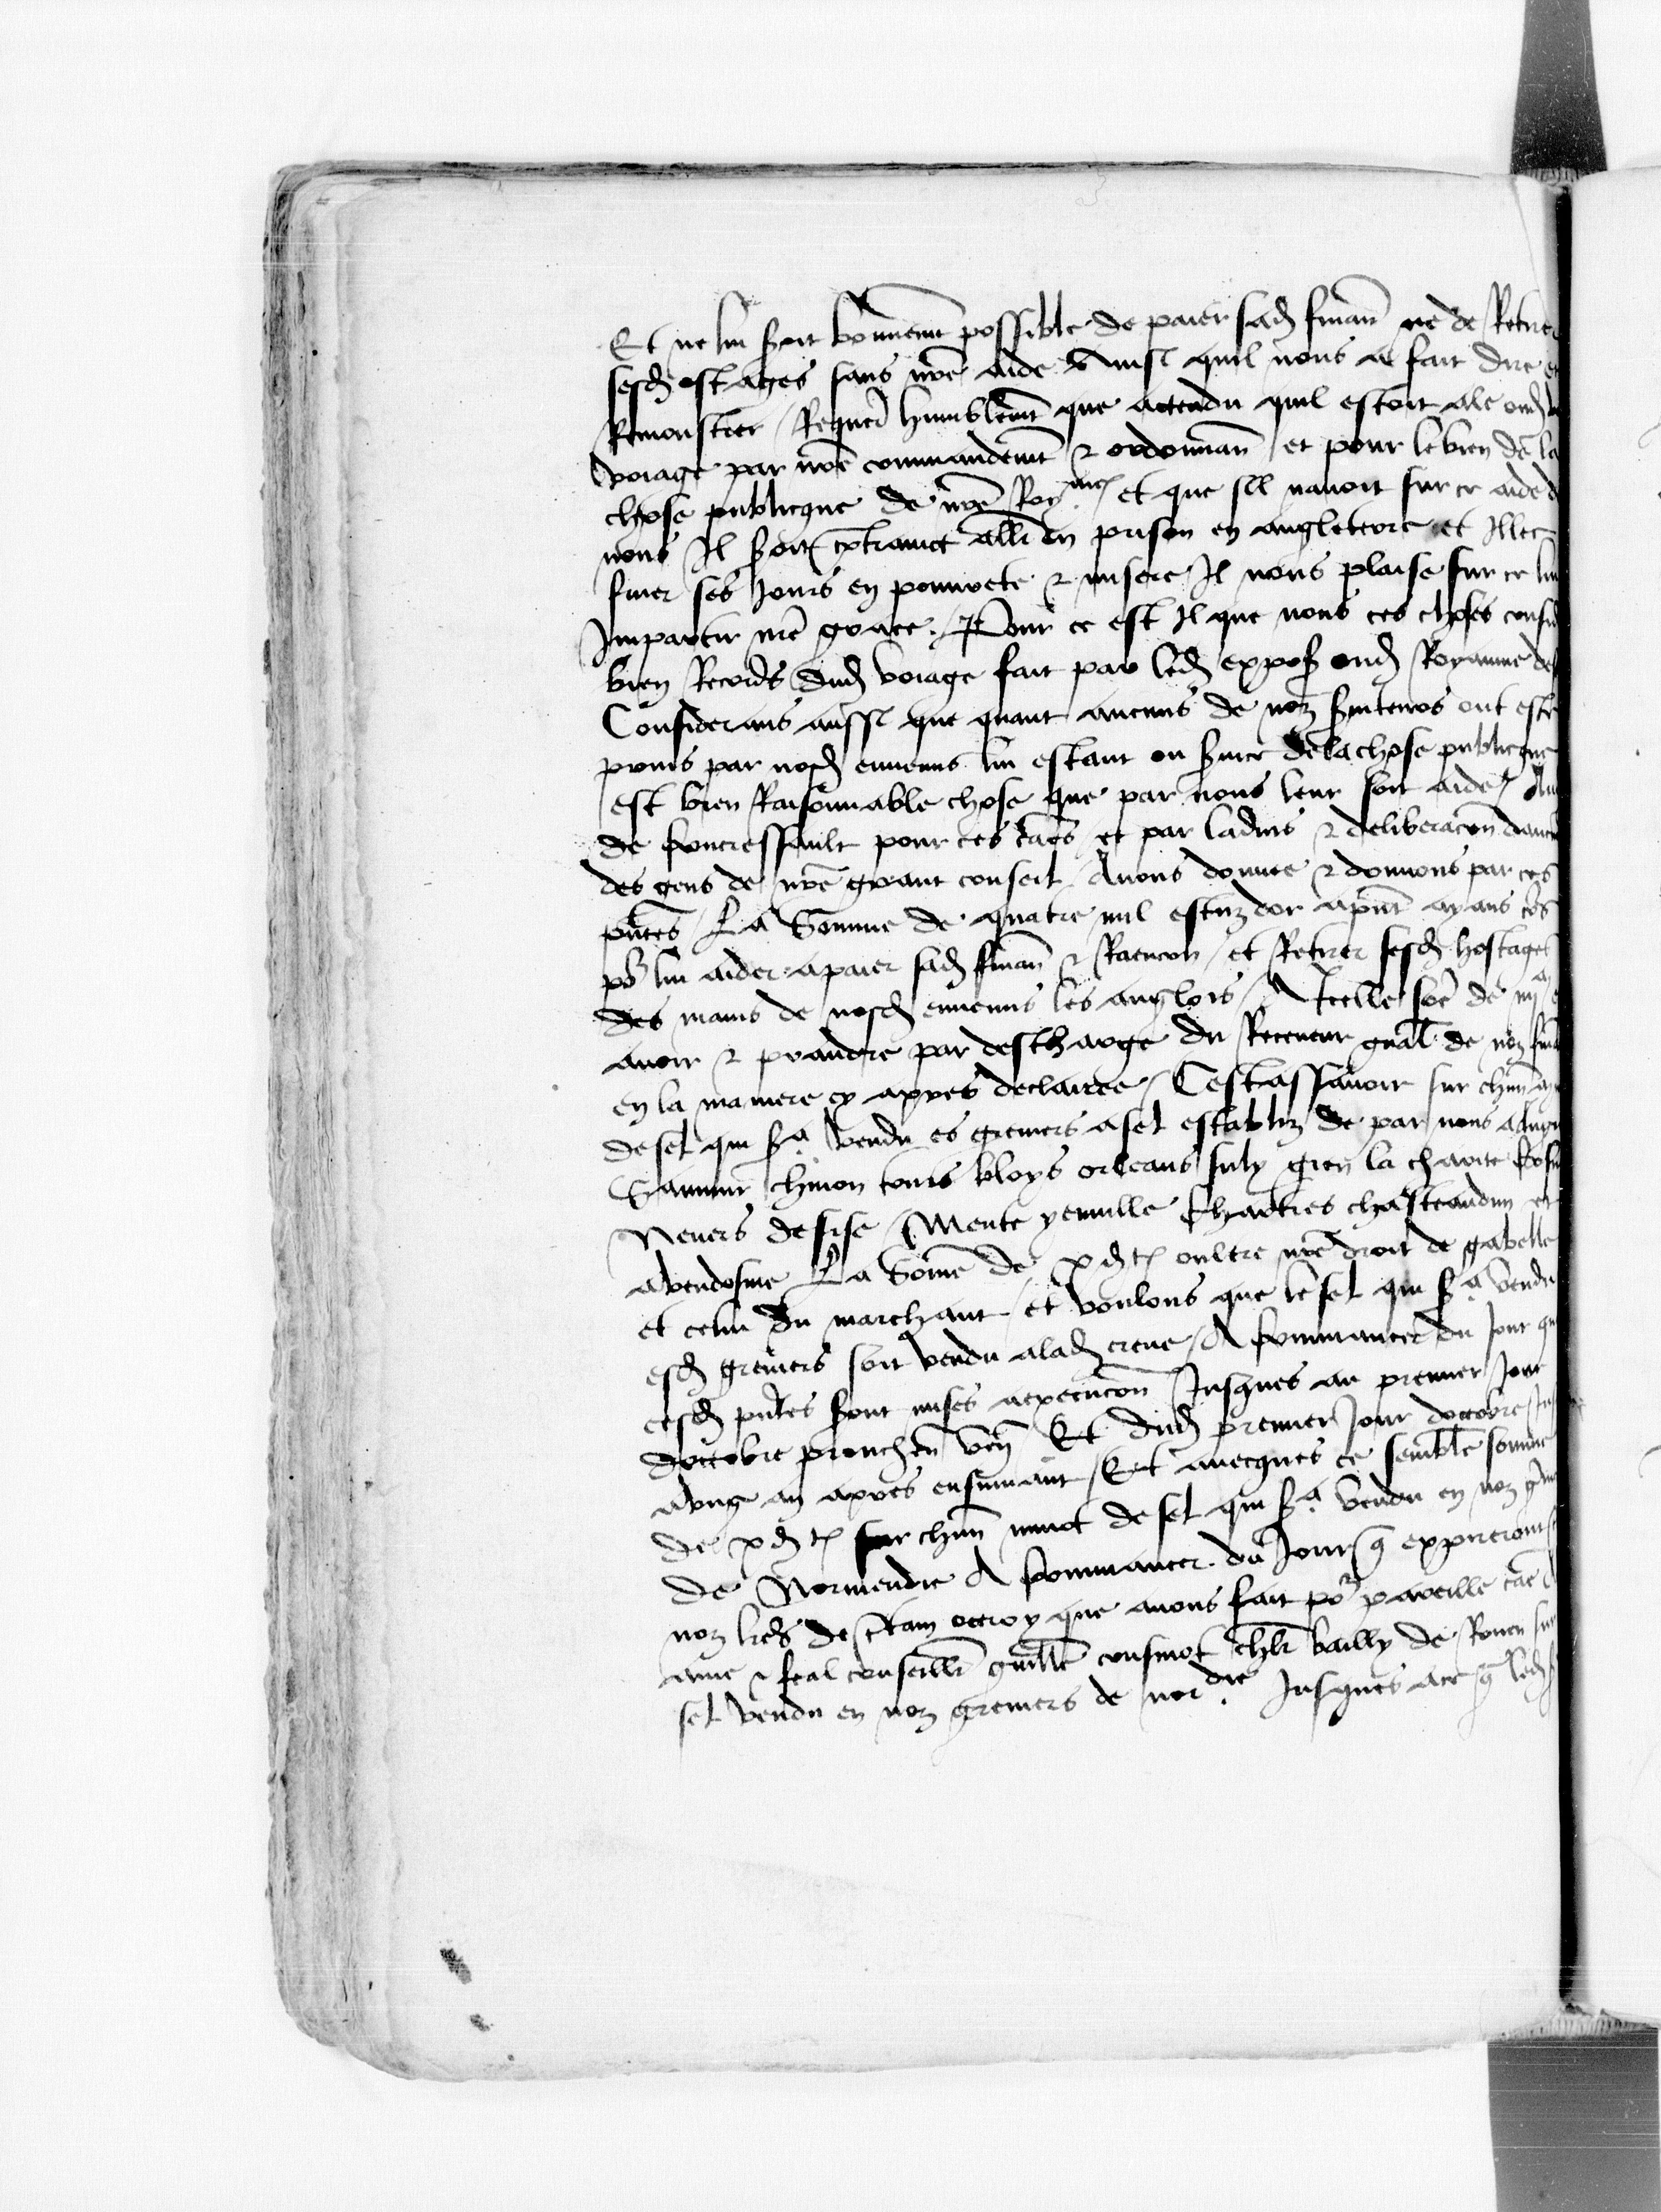 Et ne lui soit bonnemt possible de paier sad finan ne de Retirer
sesd ostages sans nre aide Ainsi quil nous a fait dire et
Remonstrer Requerã humblemt que actendu quil estoit ale oud
voiage par nre commandemt & ordonnan et pour le bien de la
chose publicque de nre Roy.me et que sil navoit sur ce aide d
nous Il seroit contrainct aller en prison en angleterre et Illec
finer ses jours en pouvrete & misere Il nous plaise sur ce lui
Impartir nre grace. Pour ce est Il que nous ces choses consid
bien Records dud voiage fait par led expos oud Royaume des
Considerans aussi que quant aucuns de noz serviteurs ont este
prins par nosd ennemis lui estant ou service de la chose publicque
est bien Raisonnable chose que par nous leur soit aide
de concressault pour ces causes et par ladvis & deliberacon daucũ
des gens de nre grant conseil Avons donne & donnons par ces
pntes La Somme de quatre mil escuz dor apnt ayans cors
por lui aider a paier sad finan & Raencon et Retirer sesd hostages
des mains de nosd ennemis les anglois A Icelle soe de iiijm
avoir & prandre par descharge du Receveur gnal de noz fina
en la maniere cy apres declairee Cestassavoir sur chun
de sel qui sera vendu es greniers a sel establiz de par nous
Saumur chinon tours bloys orleans suly gien la charite
Nevers desise Mente yenville Chartres chasteaudun et
a vendosme La Some de x d t oultre nre droit de gabelle
et celui du marchant et voulons que le sel qui sera vendu
esd greniers soit vendu a lad creue A commancer du jour que
cesd pntes seront mises a execucon Jusques au premier jour
doctobre prouchen ven Et dud premier jour doctobre
a ung an apres ensuivant Et avecques ce semble somme
de x d t sur chun minot de sel qui sera vendu en noz gre
de Normendie A commancer du Jour q expireront
noz lres de certain octroy que avons fait por pareille cause
ame & feal conseiller guille cousinot chlr bailly de Rouen sur
sel vendu en noz greniers de nor.die Jusques a ce q led